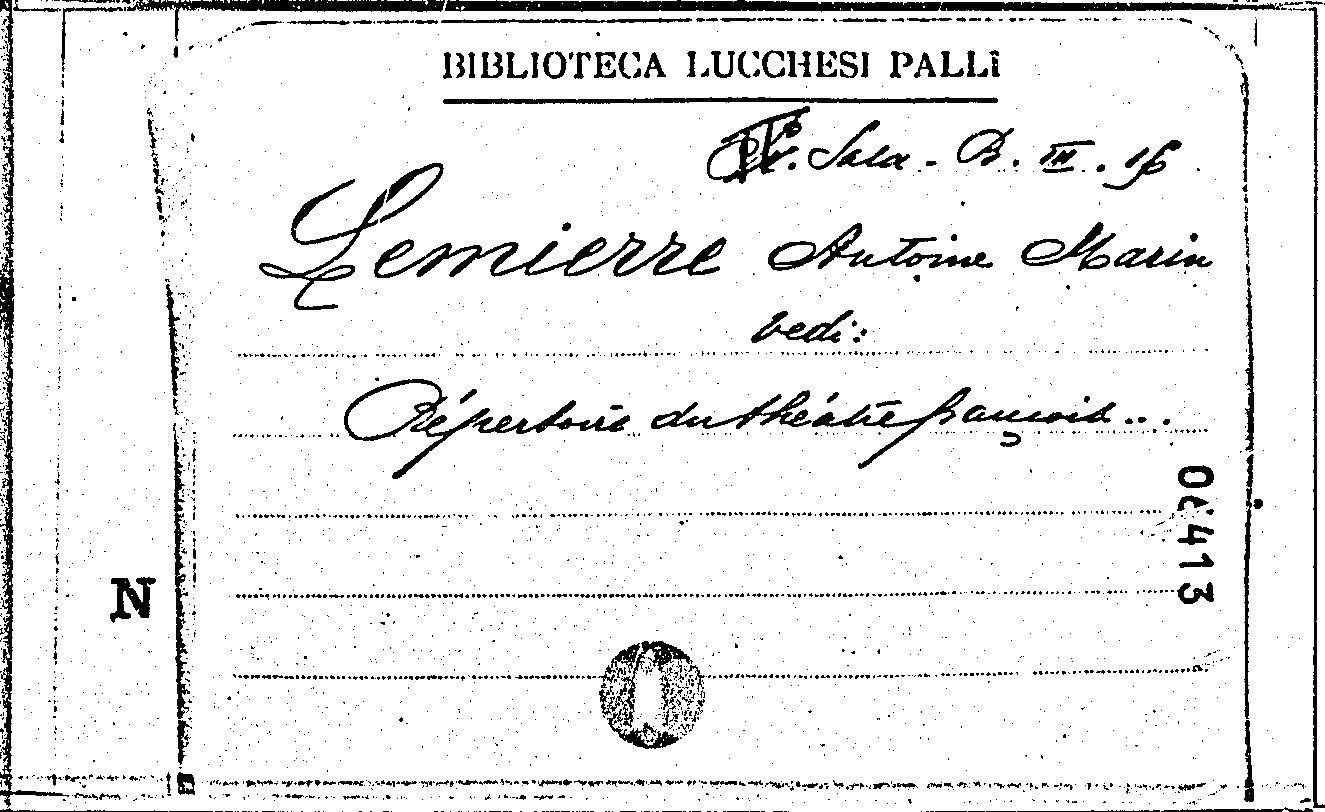 BIBLIOTECA LUCCHESI PALLI
Sala - B. III. 16
Lemierre Antoine Marin
vedi:
Répertoire du théâtre françois...
06413
N